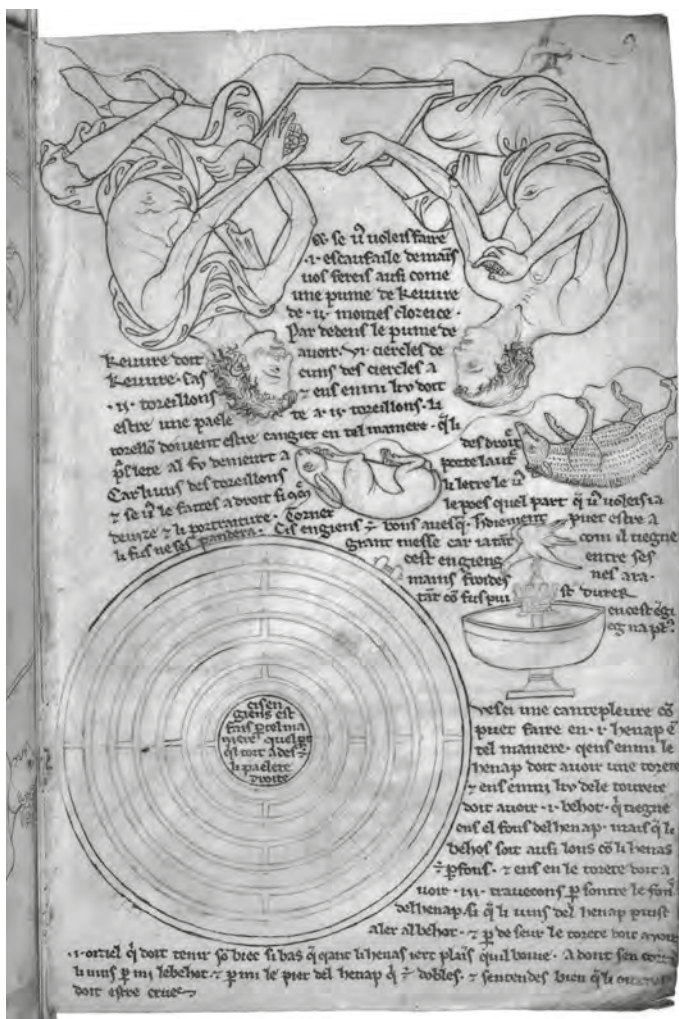 se vͦ voleis faire
·i· escaufaile de mains
vos fereis ausi come
une pume de keuvre
de ·ii· moities
Par dedens le pume de
keuvre doit avoir ·vi· ciercles de
keuvre· cas cuns des ciercles a
·ii· toreillons ⁊ ens enmi liv doit
estre une paele te a ·ii· toreillons· li
torellõ doivent estre cangiet en tel maniere· q̃ li
paelete al fv demeurt a des droite
Car li uns des toreillons porte lautͤ
⁊ se vͦ le faites a droit si 9 li letre le vͦ
devize ⁊ li portraiture· torner le poes quel part q̃ vͦ voleis ia
li fus ne ses pandera· Cis engiens ÷ bons a vesq̃· hardiement puet estre a
grant messe car ia tant com il tiegne
cest engieng entre ses
mains froides nes ara·
tãt cõ fus puist durer
en cest ẽgi
eg na plͦ
cis en
giens est
fais ꝑ tel ma
niere quel pt
qͥl tort ades ÷
li paelete
droite
Vesci une cantepleure cõ
puet faire en ·i· henap ẽ
tel maniere· qens enmi le
henap doit avoir une torete
⁊ ens enmi liv de le tourete
doit avoir ·i· behot· q̃ tiegne
ens el fons del henap· mais q̃ li
behos soit ausi lons cõ li henas
÷ ꝑfons· ⁊ ens en le torete doit a
voir ·iii· travecons ꝑ sontre le fons
del henap· si q̃ li vins del henap puist
aler al behot· ⁊ ꝑ de seur le torete doit avoir
·i· oiziel q̃ doit tenir sõ biec si bas q̃ qant li henas iert plaĩs quil boive· A dont sen
li vins ꝑ mi le behot· ⁊ ꝑ mi le piet del henap q̃ ÷ dobles· ⁊ sentendes bien q̃ li
doit estre crues